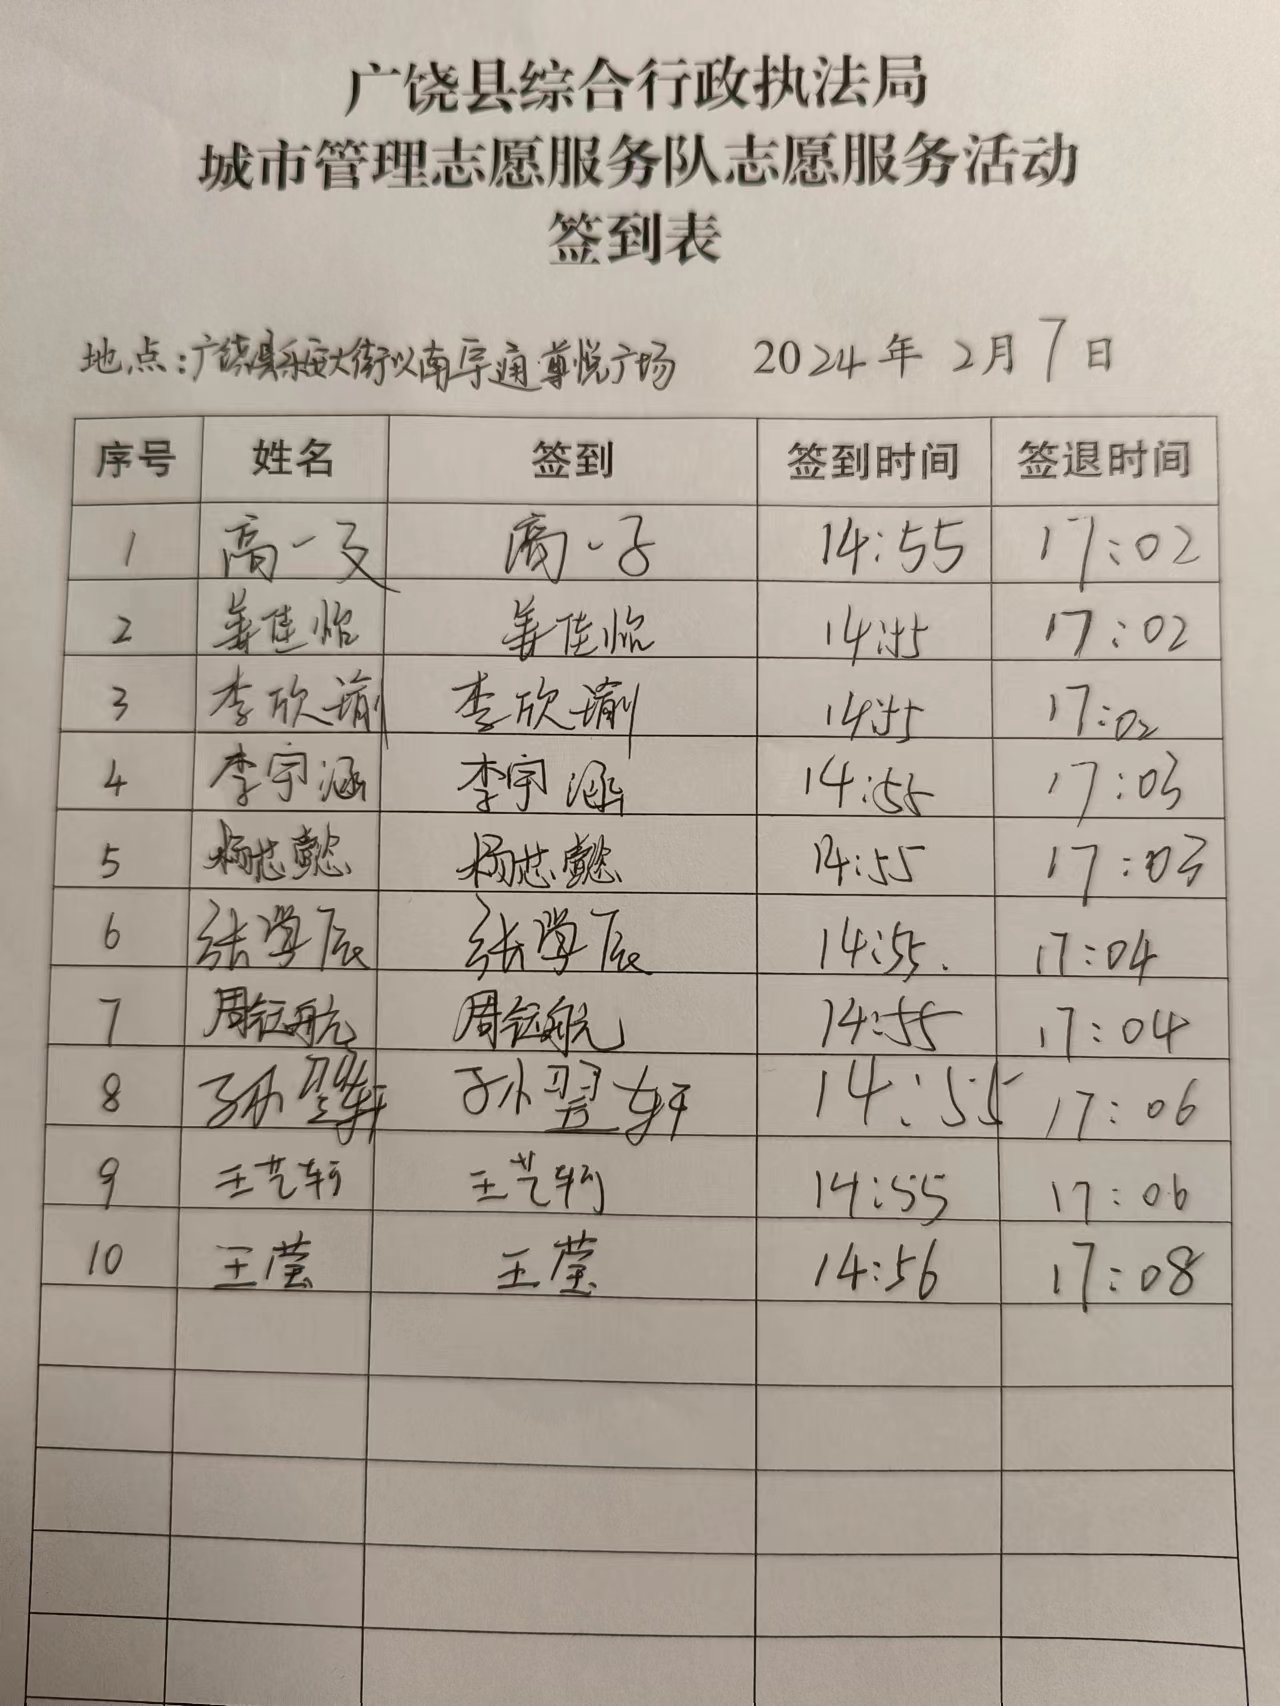 广饶县综合行政执法局
城市管理志愿服务队志愿服务活动
签到表
地点：广饶县乐安大街以南孚通尊悦广场 2024年2月7日
序号 姓名 签到 签到时间 签退时间
1 高一 高一 14:55 17:02
2 姜佳怡 姜佳怡 14:55 17:02
3 李欣瑜 李欣瑜 14:55 17:02
4 李宇涵 李宇涵 14:55 17:03
5 杨志懿 杨志懿 14:55 17:03
6 张学辰 张学辰 14:55. 17:04
7 周钰航 周钰航 14:55 17:04
8 孙翌轩 孙翌轩 14:55 17:06
9 王艺轲 王艺轲 14:55 17:06
10 王莹 王莹 14:56 17:08